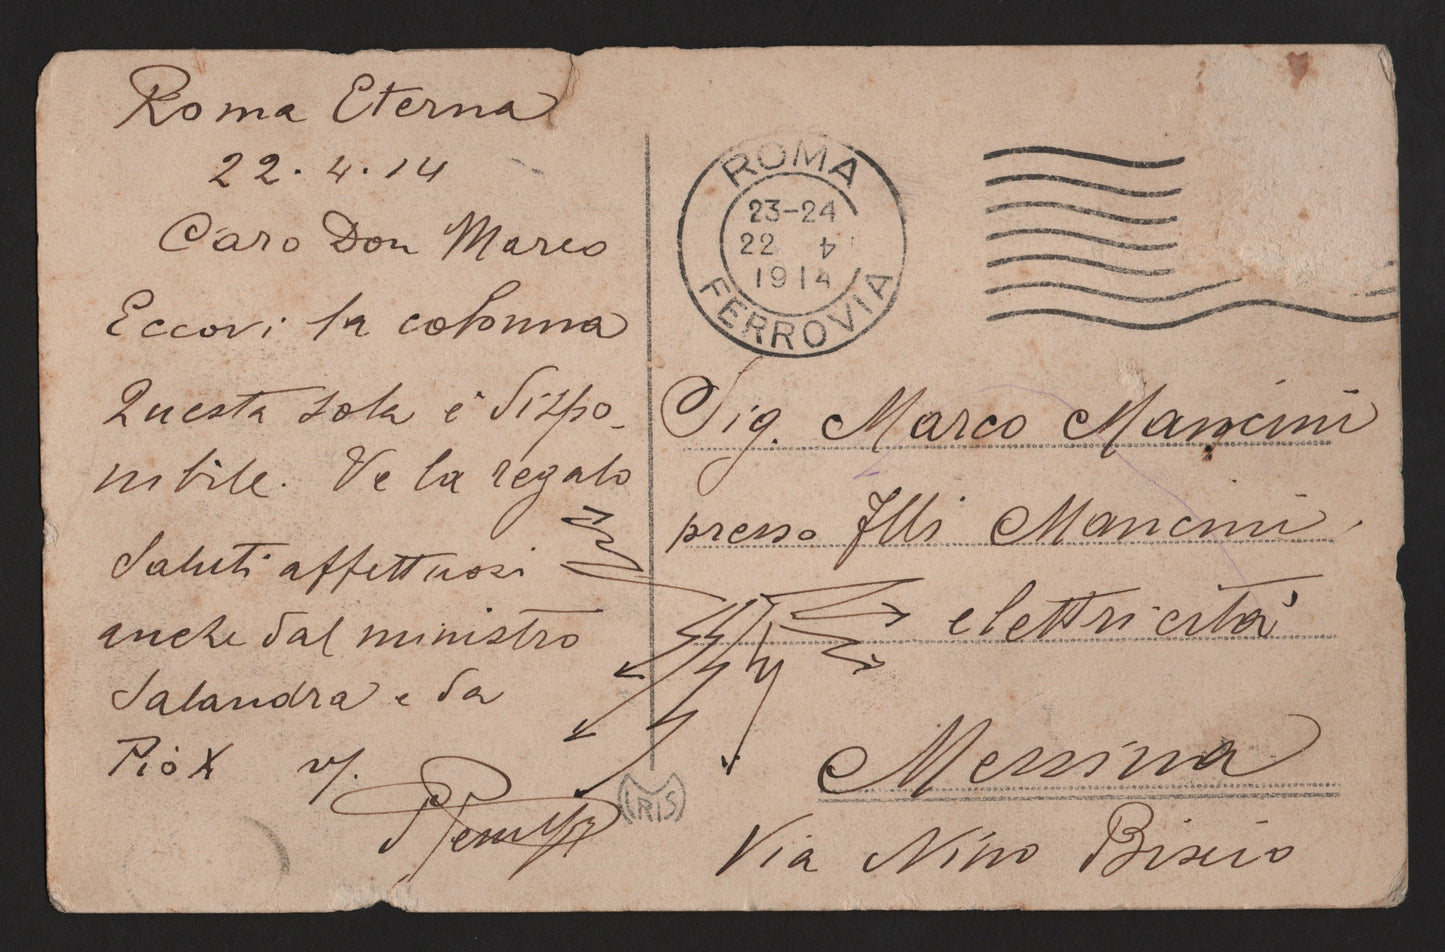 Roma Eterna
22.4.14
Caro Don Marco
Eccovi la colonna
Questa sola è dispo-
nibile. Ve la regalo
Saluti affettuosi
anche dal ministro
Salandra e da
Pio X
ROMA
23-24
22 4
1914
FERROVIA
Sig. Marco Mancini
presso Flli Mancini
elettricità
Messina
Via Nino Bixio
IRIS